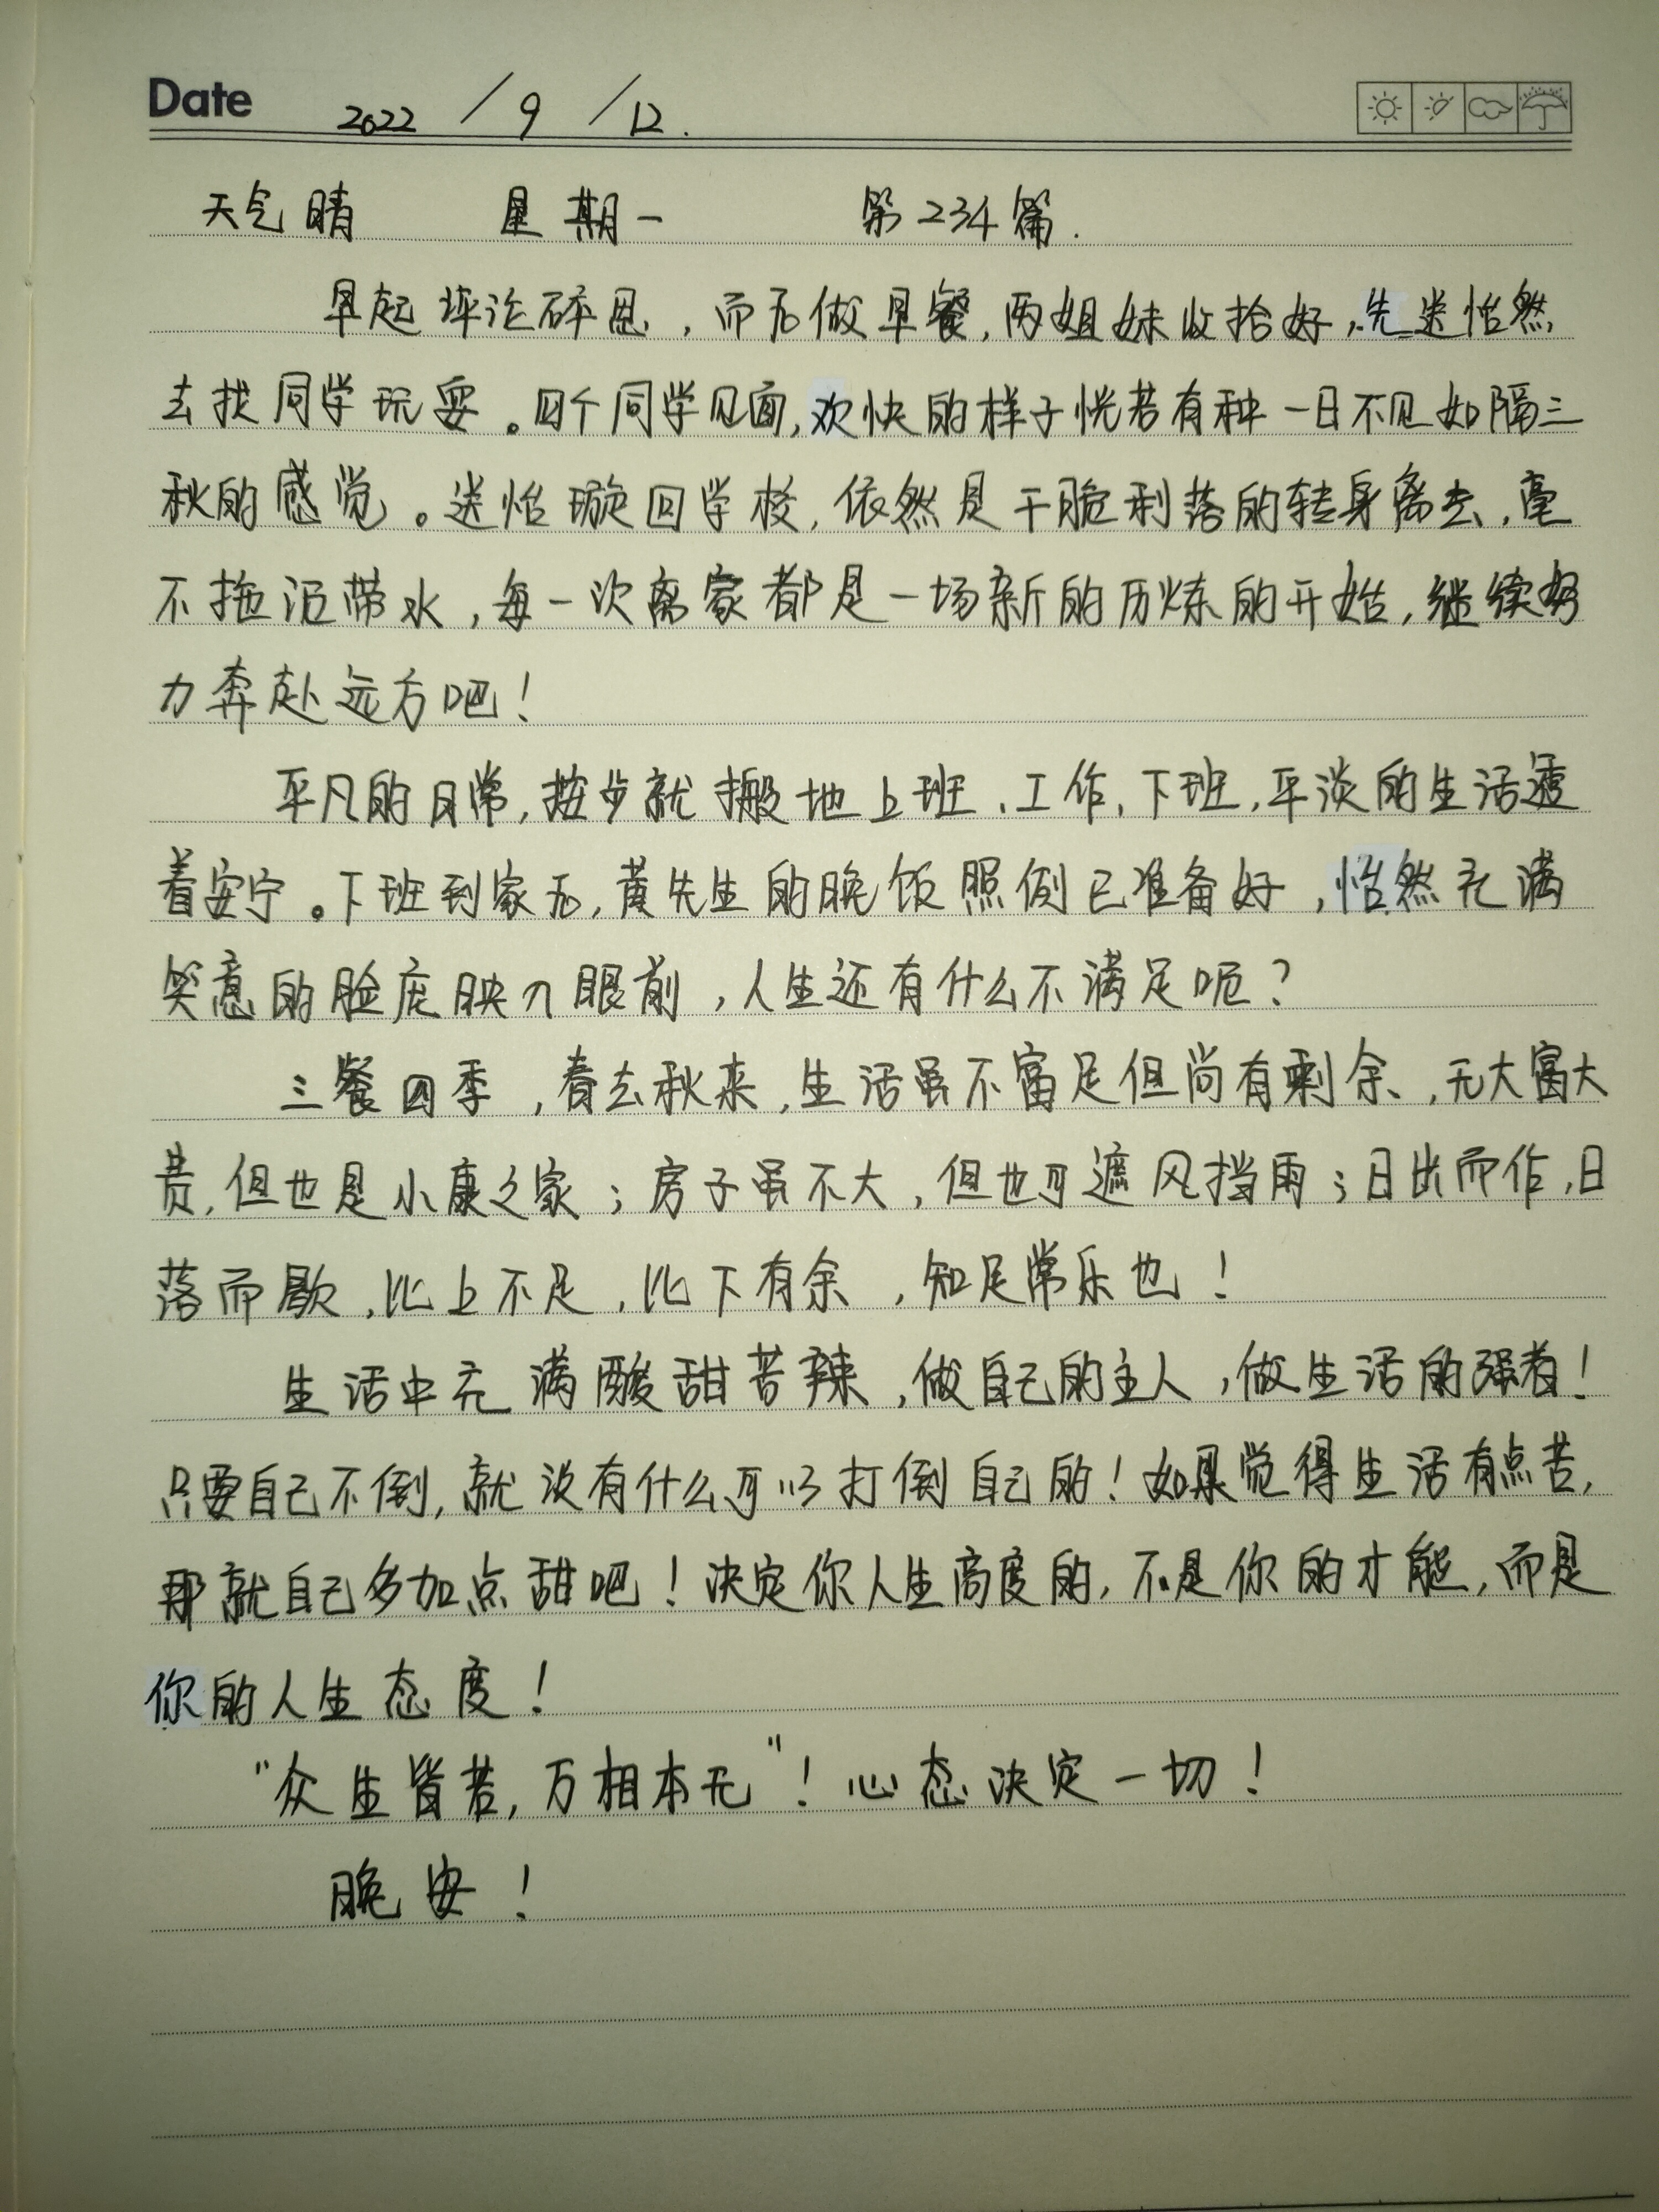 Date 2022/9/12.
天气晴 星期一 第234篇.
早起评论碎思，而后做早餐，两姐妹收拾好，先送怡然
去找同学玩耍。四个同学见面，欢快的样子恍若有种一日不见如隔三
秋的感觉。送怡璇回学校，依然是干脆利落的转身离去，毫
不拖泥带水，每一次离家都是一场新的历炼的开始，继续努
力奔赴远方吧！
平凡的日常，按步就搬地上班、工作、下班，平淡的生活透
着安宁。下班到家后，黄先生的晚饭照例已准备好，怡然充满
笑意的脸庞映入眼前，人生还有什么不满足呢？
三餐四季，春去秋来，生活虽不富足但尚有剩余、，无大富大
贵，但也是小康之家；房子虽不大，但也可遮风挡雨；日出而作，日
落而歇，比上不足，比下有余，知足常乐也！
生活中充满酸甜苦辣，做自己的主人，做生活的强者！
只要自己不倒，就没有什么可以打倒自己的！如果觉得生活有点苦，
那就自己多加点甜吧！决定你人生高度的，不是你的才能，而是
你的人生态度！
“众生皆苦，万相本无”！心态决定一切！
晚安！